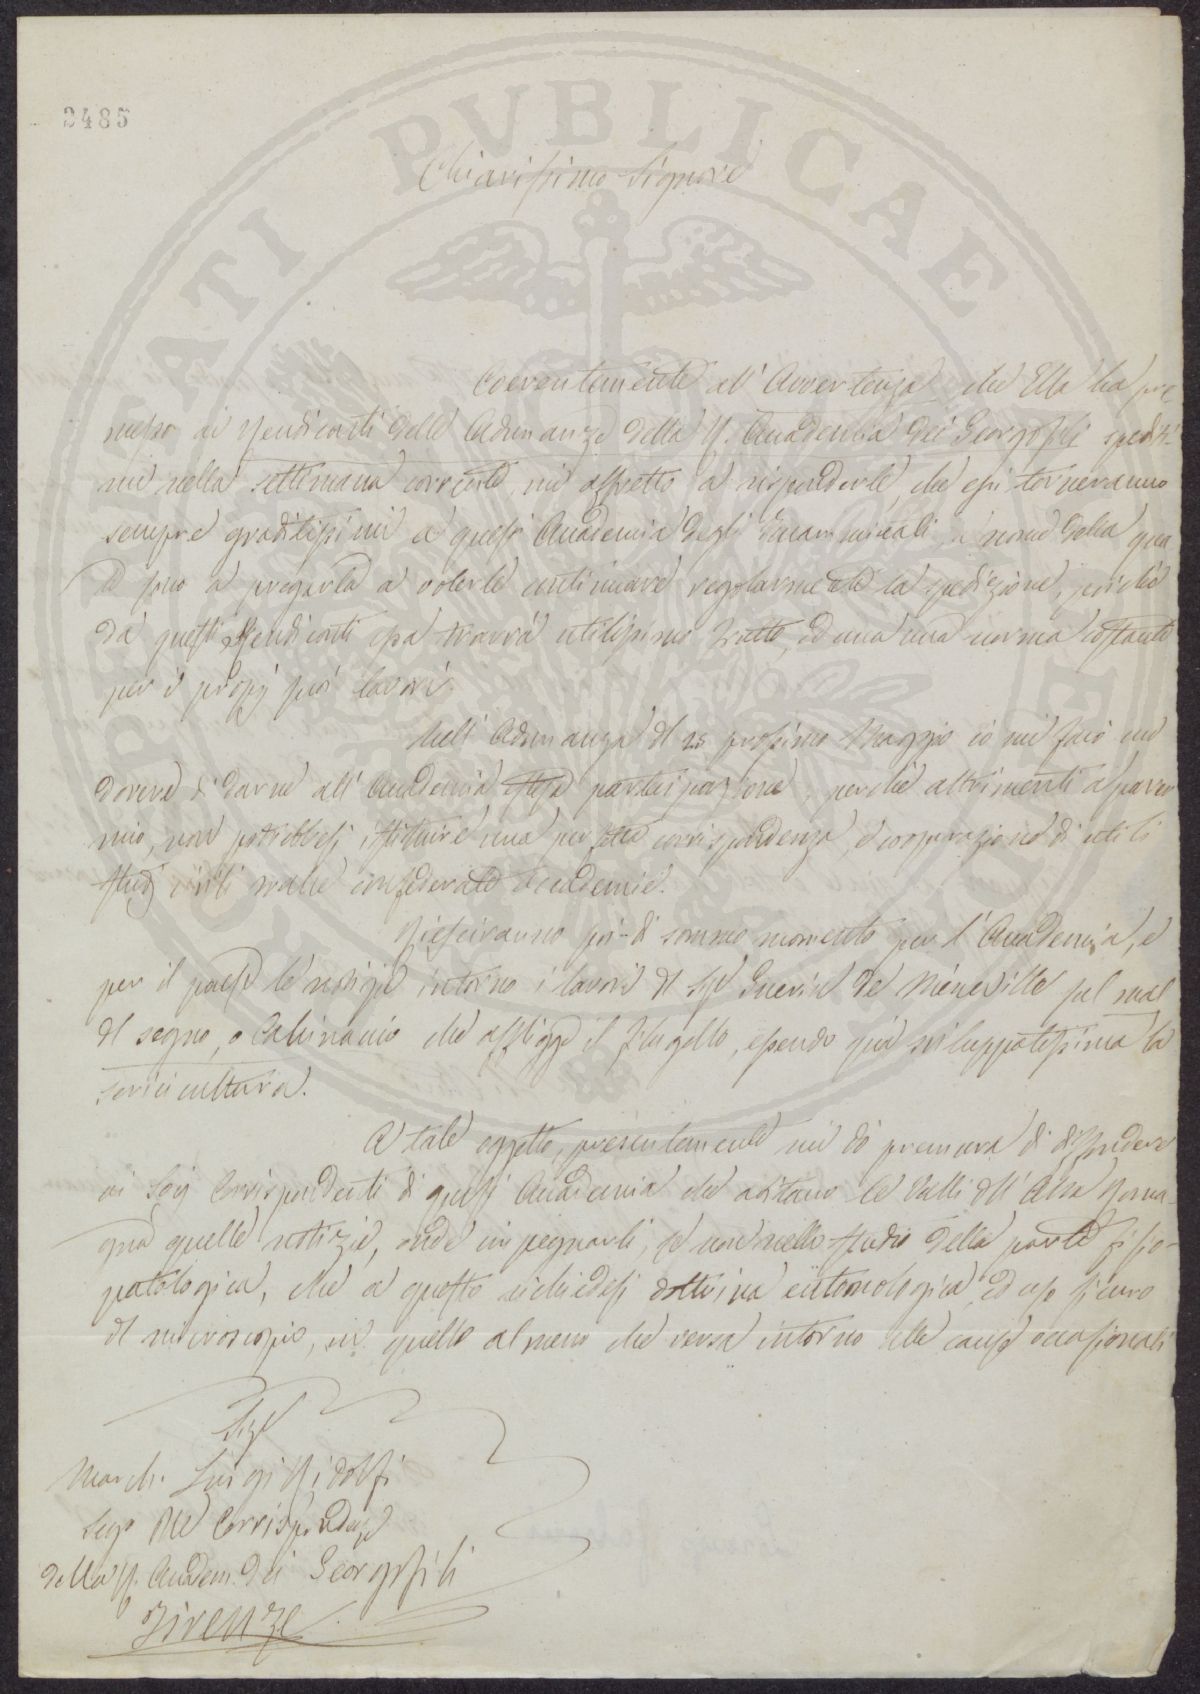 2485
PRIVATI PVBLICAE
Chiarissimo Signore
Coerentemente all'Avvertenza che Ella ha pre
messo ai Rendiconti delle Adunanze della R. Accademia dei Georgofili spediti
mi nella settimana corrente, mi affretto a risponderle, che essi torneranno
sempre graditissimi a questa Accademia degli Incamminati, a nome della qua
le sono a pregarla a volerle continuare regolarmente la spedizione, poiché
da questi Rendiconti essa trarrà utilissimo frutto, ed una norma costante
per i propj suoi lavori.
Nell'Adunanza del 25 prossimo Maggio io mi farò un
dovere di darne all'Accademia stessa partecipazione, perché altrimenti a parer
mio, non potrebbesi istituire una perfetta corrispondenza, e cooperazione di utili
studj civili nelle confederate Accademie.
Riesciranno poi di sommo momento per l'Accademia, e
per il paese le notizie intorno i lavori del Sig.r Guerin de Méneville sul mal
del segno, o Calcinaccio che affligge il Filugello, essendo qui sviluppatissima la
sericicultura.
A tale oggetto, presentemente mi dò premura di diffondere
ai Sog Corrispondenti di questa Accademia che abitano le Valli dell'Alta Roma-
gna quelle notizie, onde impegnarli, se non nello studio della parte fisio-
patologica, che a questo richiedesi dottrina entomologica, ed uso sicuro
del microscopio, in quello almeno che versa intorno alle cause occasionali
Sig.e
March. Luigi Ridolfi
Seg.o delle Corrispondenze
della R. Accadem. dei Georgofili
Firenze